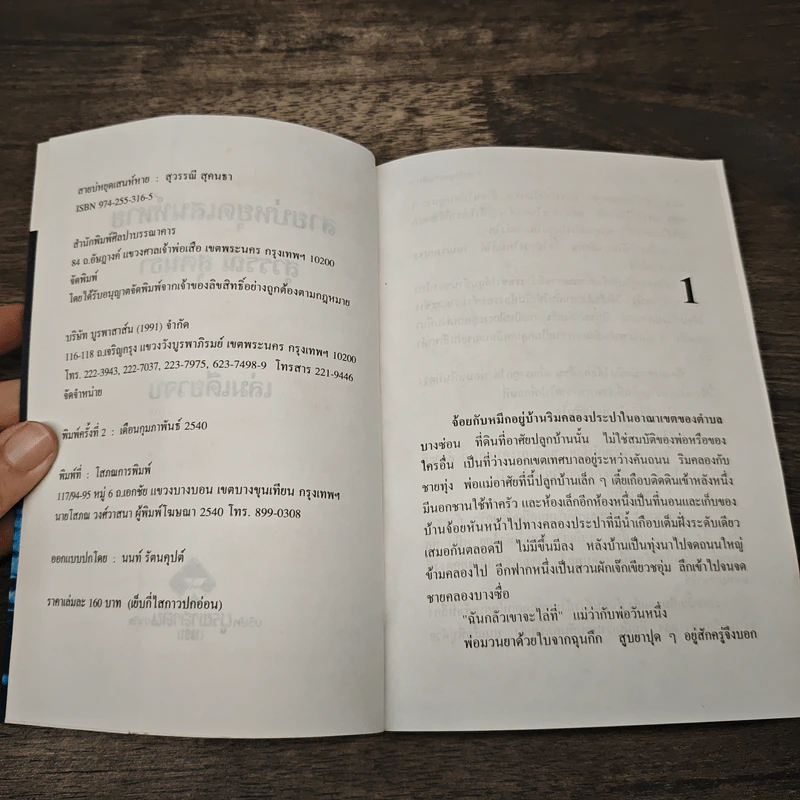 สายบ่หยุดเสน่ห์หาย : สุวรรณี สุคนธา
ISBN 974-255-316-5
สำนักพิมพ์ศิลปาบรรณาคาร
84 ถ.อัษฎางค์ แขวงศาลเจ้าพ่อเสือ เขตพระนคร กรุงเทพฯ 10200
จัดพิมพ์
โดยได้รับอนุญาตจัดพิมพ์จากเจ้าของลิขสิทธิ์อย่างถูกต้องตามกฎหมาย
บริษัท บูรพาสาส์น (1991) จำกัด
116-118 ถ.เจริญกรุง แขวงวังบูรพาภิรมย์ เขตพระนคร กรุงเทพฯ 10200
โทร. 222-3943, 222-7037, 223-7975, 623-7498-9 โทรสาร 221-9446
จัดจำหน่าย
พิมพ์ครั้งที่ 2 : เดือนกุมภาพันธ์ 2540
พิมพ์ที่ : โสภณการพิมพ์
117/94-95 หมู่ 6 ถ.เอกชัย แขวงบางบอน เขตบางขุนเทียน กรุงเทพฯ
นายโสภณ วงศ์วาสนา ผู้พิมพ์โฆษณา 2540 โทร. 899-0308
ออกแบบปกโดย : นนท์ รัตนคุปต์
ราคาเล่มละ 160 บาท (เย็บกี่ไสกาวปกอ่อน)
1
จ้อยกับหมึกอยู่บ้านริมคลองประปาในอาณาเขตของตำบล
บางซ่อน ที่ดินที่อาศัยปลูกบ้านนั้น ไม่ใช่สมบัติของพ่อหรือของ
ใครอื่น เป็นที่ว่างนอกเขตเทศบาลอยู่ระหว่างคันถนน ริมคลองกับ
ชายทุ่ง พ่อแม่อาศัยที่นี้ปลูกบ้านเล็ก ๆ เตี้ยเกือบติดดินเข้าหลังหนึ่ง
มีนอกชานใช้ทำครัว และห้องเล็กอีกห้องหนึ่งเป็นที่นอนและเก็บของ
บ้านจ้อยหันหน้าไปทางคลองประปาที่มีน้ำเกือบเต็มฝั่งระดับเดียว
เสมอกันตลอดปี ไม่มีขึ้นมีลง หลังบ้านเป็นทุ่งนาไปจดถนนใหญ่
ข้ามคลองไป อีกฟากหนึ่งเป็นสวนผักเจ๊กเขียวชอุ่ม ลึกเข้าไปจนจด
ชายคลองบางซื่อ
"ฉันกลัวเขาจะไล่ที่" แม่ว่ากับพ่อวันหนึ่ง
พ่อมวนยาด้วยใบจากฉุนกึก สูบยาปุด ๆ อยู่สักครู่จึงบอก